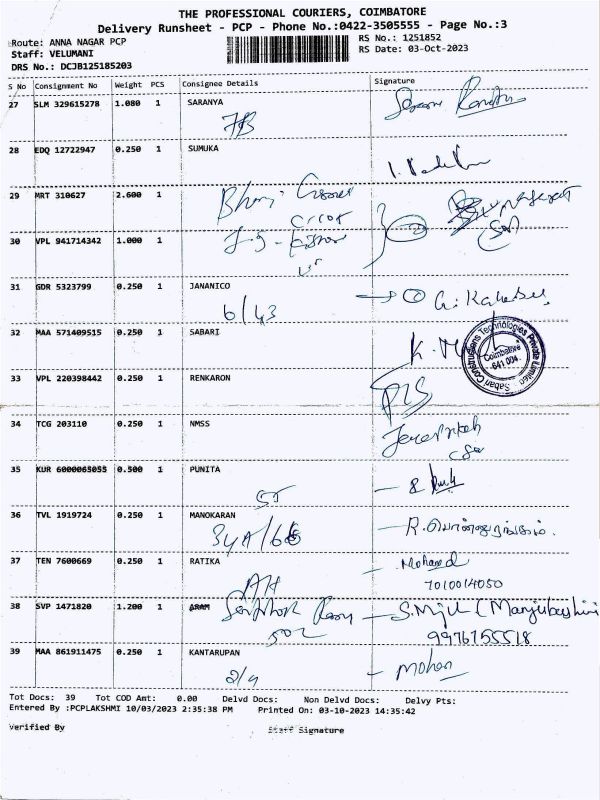 THE PROFESSIONAL COURIERS, COIMBATORE
Delivery Runsheet - PCP - Phone No.:0422-3505555 - Page No.:3
Route: ANNA NAGAR PCP
RS No.: 1251852
Staff: VELUMANI
RS Date: 03-Oct-2023
DRS No.: DCJB125185203
S No Consignment No Weight PCS Consignee Details Signature
27 SLM 329615278 1.080 1 SARANYA
28 EDQ 12722947 0.250 1 SUMUKA
29 MRT 310627 2.600 1
30 VPL 941714342 1.000 1
31 GDR 5323799 0.250 1 JANANICO
6/43
32 MAA 571409515 0.250 1 SABARI
Sabari Constructions Technologies Private Limited
Coimbatore
641 004.
33 VPL 220398442 0.250 1 RENKARON
34 TCG 203110 0.250 1 NMSS
35 KUR 6000065055 0.500 1 PUNITA
36 TVL 1919724 0.250 1 MANOKARAN
37 TEN 7600669 0.250 1 RATIKA
Mohamed
7010014050
38 SVP 1471820 1.200 1
502
9976755518
39 MAA 861911475 0.250 1 KANTARUPAN
2/9
Mohan
Tot Docs: 39 Tot COD Amt: 0.00 Delvd Docs: Non Delvd Docs: Delvy Pts:
Entered By :PCPLAKSHMI 10/03/2023 2:35:38 PM Printed On: 03-10-2023 14:35:42
Verified By Staff Signature